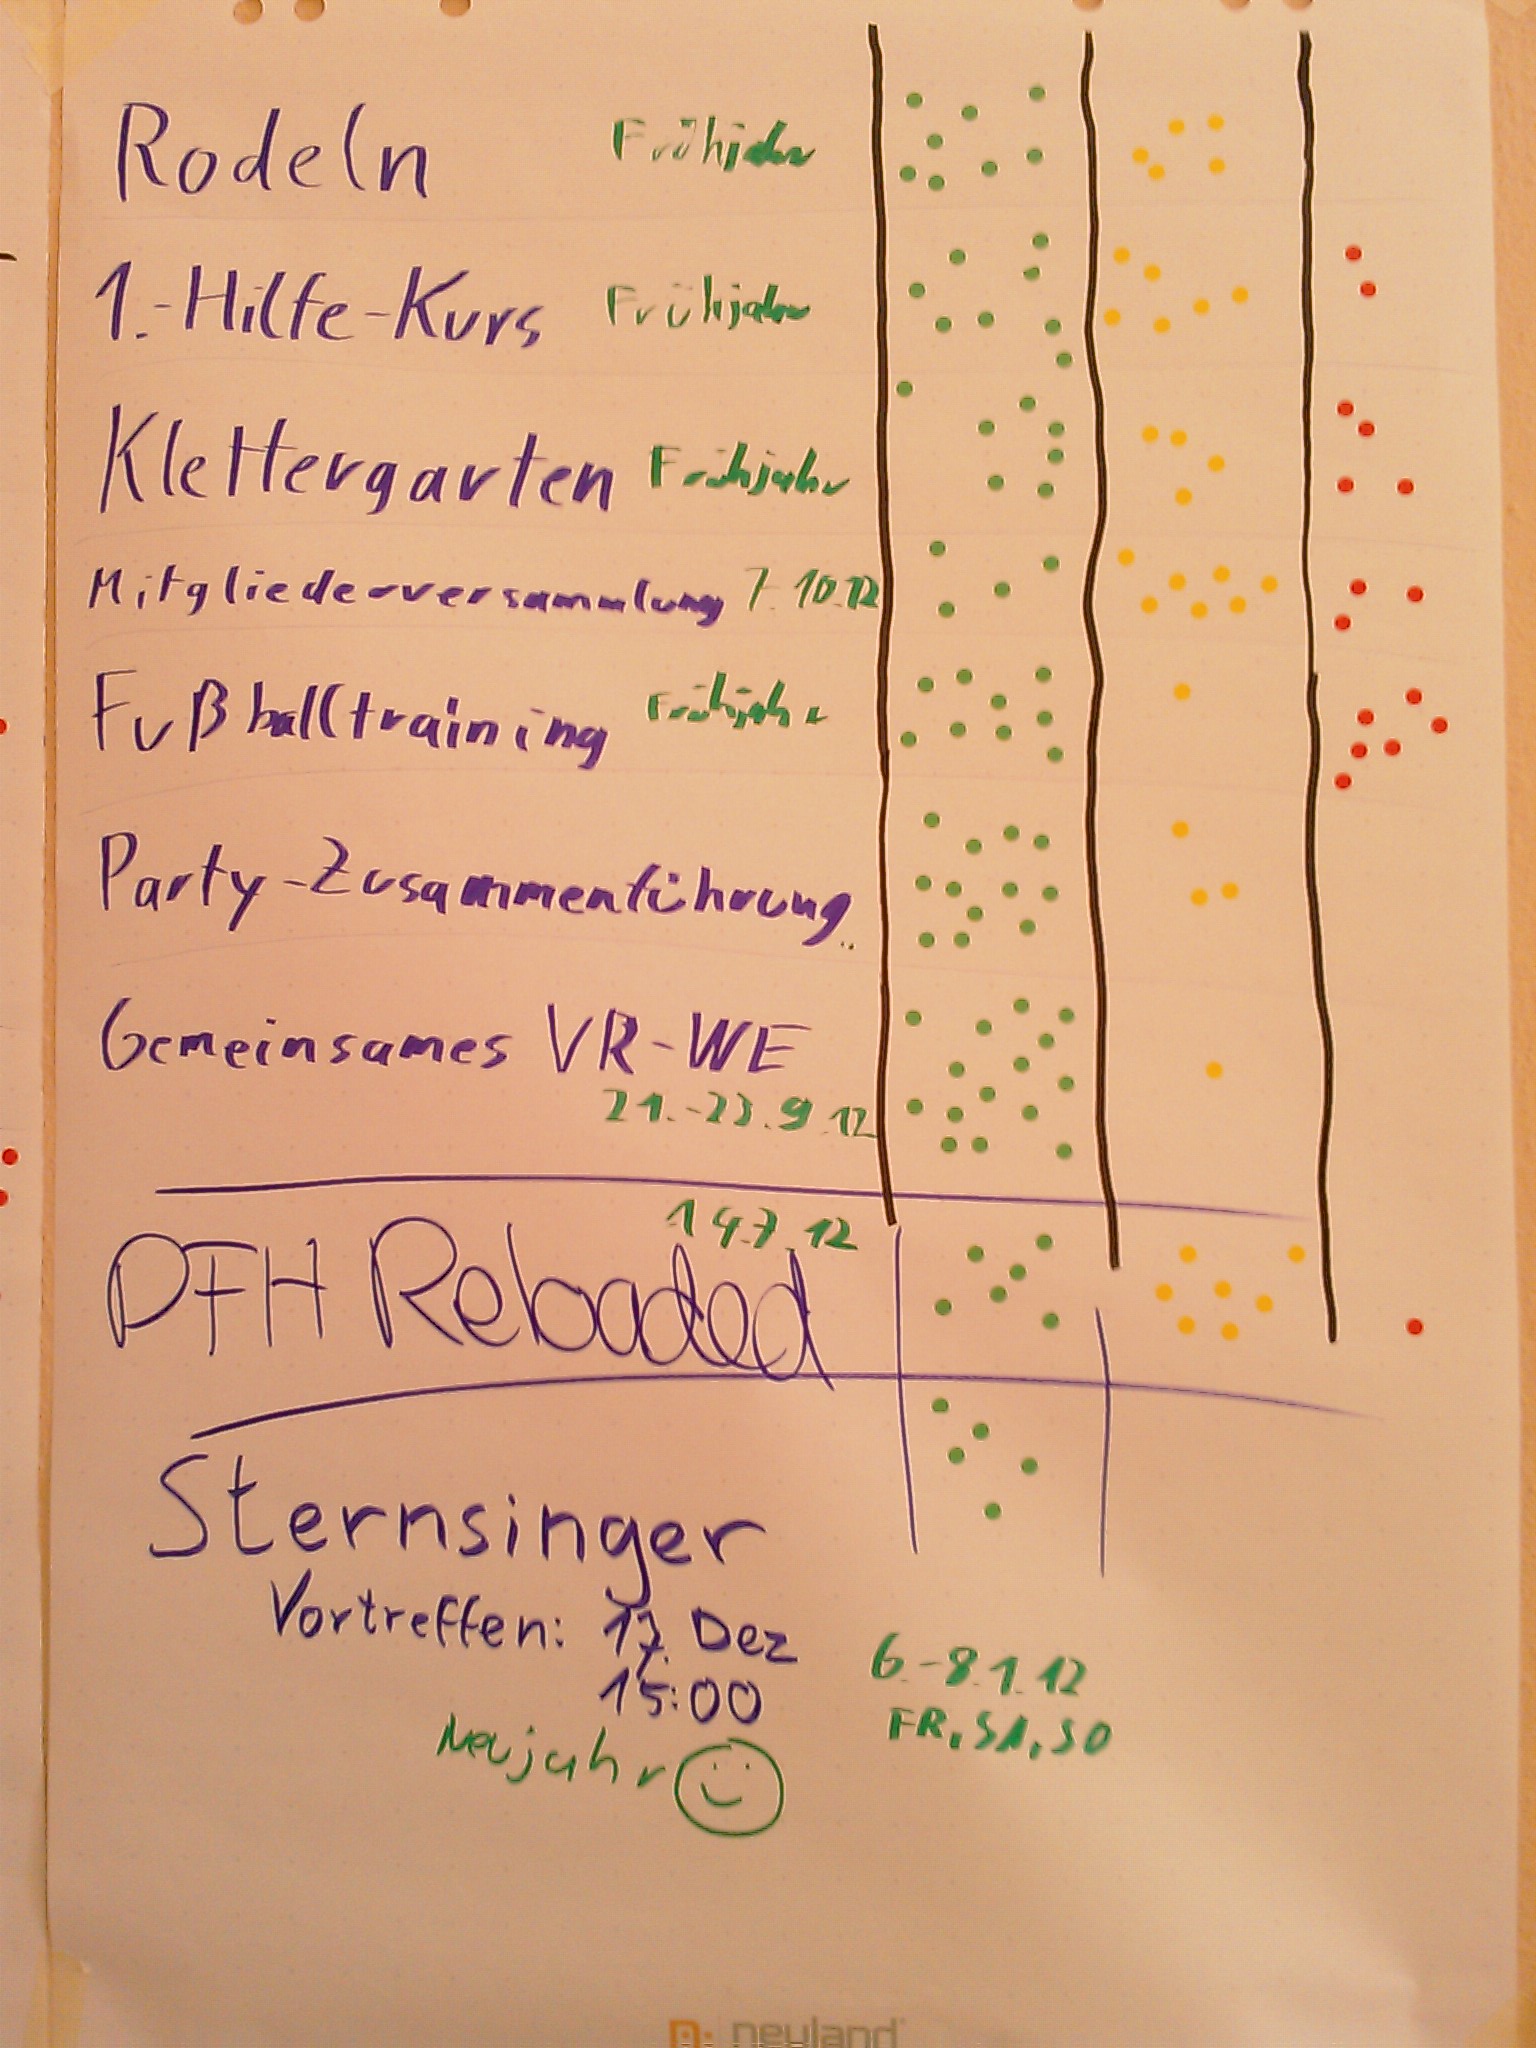 Rodeln Frühjahr
1.-Hilfe-Kurs Frühjahr
Klettergarten Frühjahr
Mitgliederversammlung 7.10.12
Fußballtraining Frühjahr
Party-Zusammenführung..
Gemeinsames VR-WE
21.-23.9.12
14.7.12
DFH Reloaded
Sternsinger
Vortreffen: 17. Dez
15:00
6.-8.1.12
FR, SA, SO
Neujahr
neuland